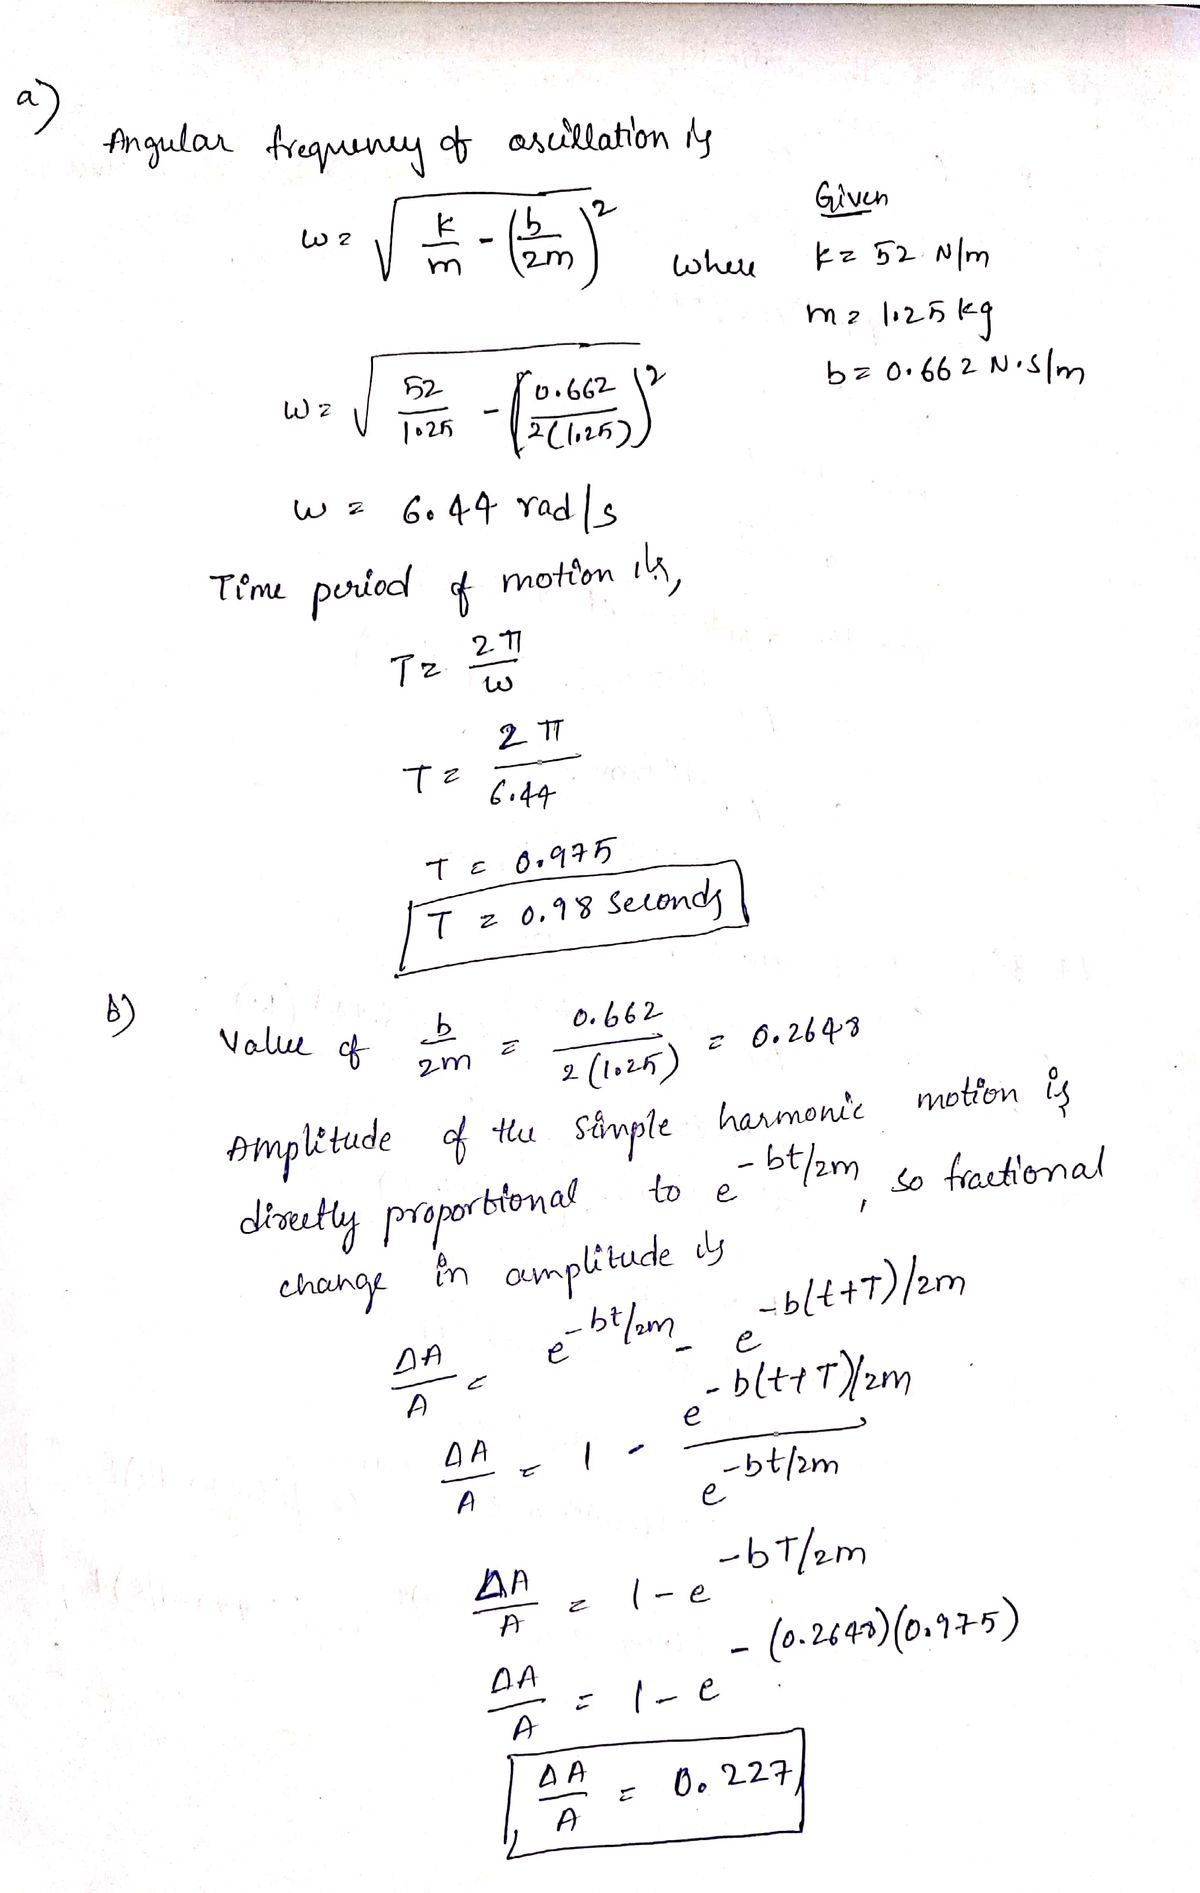 a)
Angular frequency of oscillation is
ω = √(k/m - (b/2m)²) where
Given
k = 52 N/m
m = 1.25 kg
b = 0.662 N.S/m
ω = √(52/1.25 - (0.662/2(1.25))²)
ω = 6.44 rad/s
Time period of motion is,
T = 2π/ω
T = 2π/6.44
T = 0.975
T = 0.98 Seconds
b)
Value of b/2m = 0.662/2(1.25) = 0.2648
Amplitude of the simple harmonic motion is
directly proportional to e^-bt/2m, so fractional
change in amplitude is
ΔA/A = e^-bt/2m - e^-b(t+T)/2m
ΔA/A = 1 - e^-b(t+T)/2m / e^-bt/2m
ΔA/A = 1 - e^-bT/2m
ΔA/A = 1 - e^-(0.2648)(0.975)
ΔA/A = 0.227